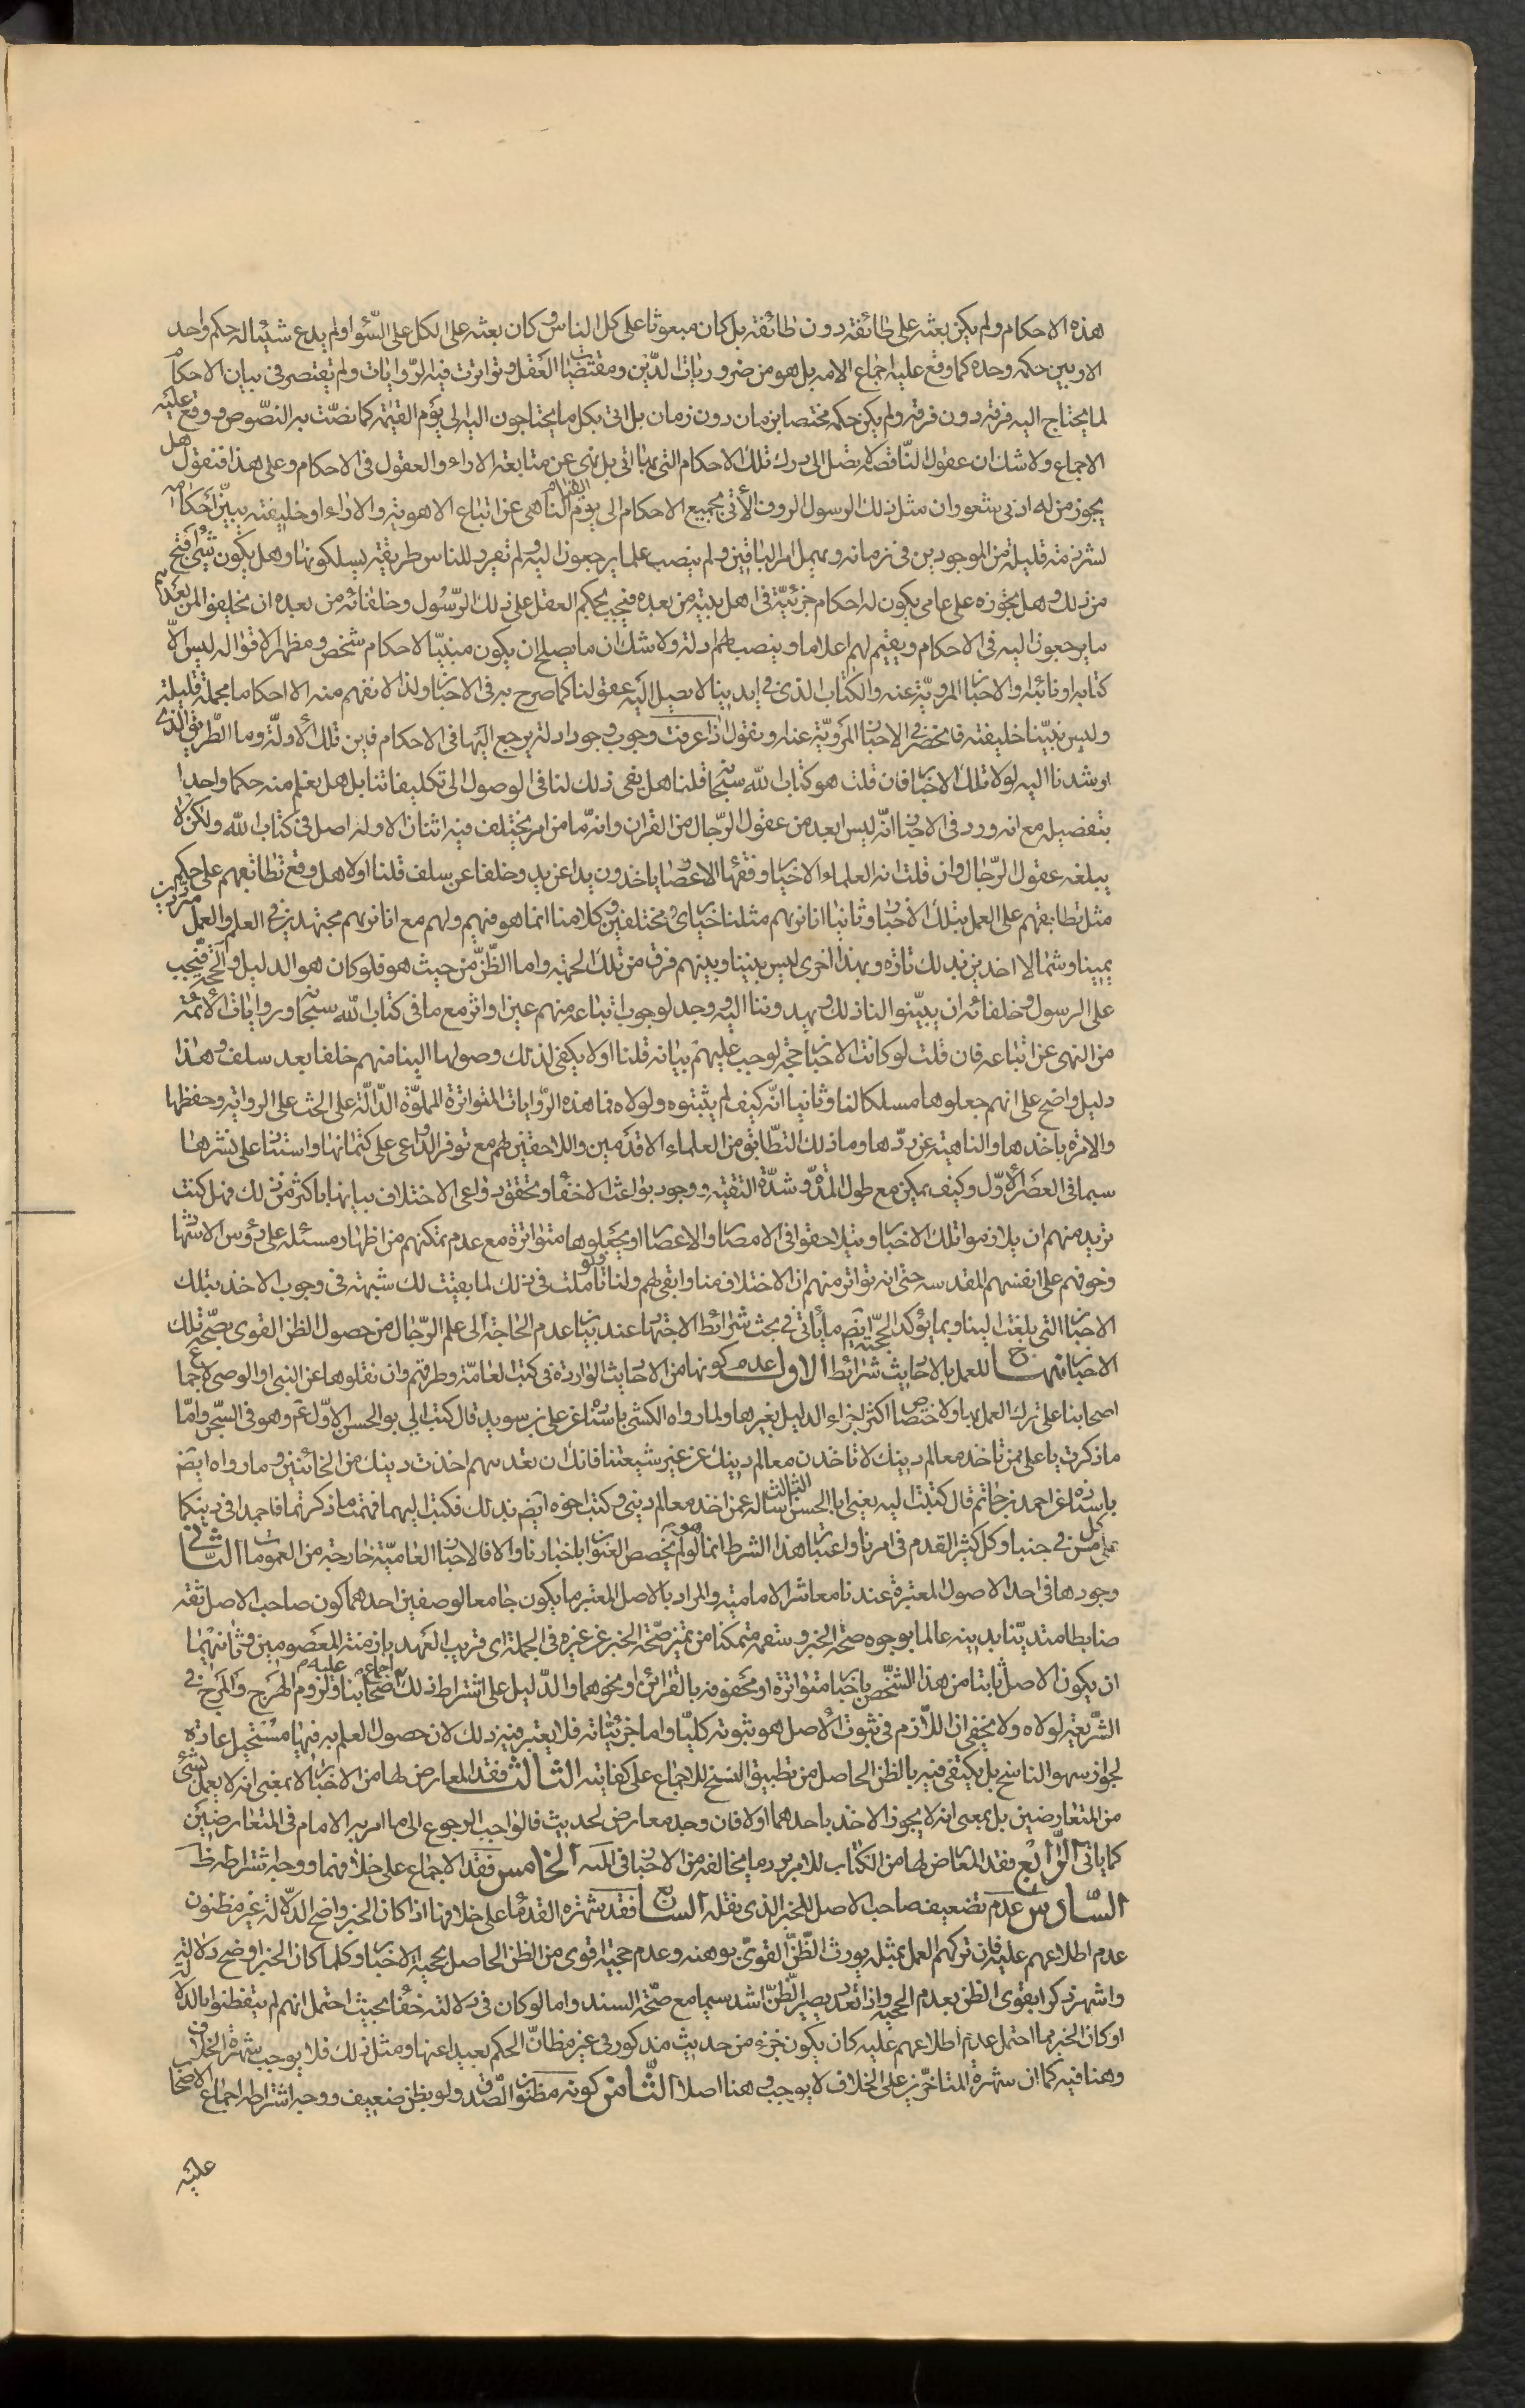 هذه الاحكام ولم يكن بعثه على طائفة دون طائفة بل كان مبعوثا على كل الناس وكان بعثه على الكل على السواء ولم يدع شيئا له حكم واحد
الا وبين حكمه وحده كما وقع عليه اجماع الامة بل هو من ضروريات الدين ومقتضيات العقل وتواترت فيه الروايات ولم يقتصر في بيان الاحكام
لما يحتاج اليه فرقة دون فرقة ولم يكن حكمه مختصا بزمان دون زمان بل اتى بكل ما يحتاجون اليه الى يوم القيمة كما نصت به النصوص ووقع عليه
الاجماع ولا شك ان عقولنا الناقصة لا تصل الى درك تلك الاحكام التي بها اتى بل نهى عن متابعة الاراء والعقول في الاحكام وعلى هذا فنقول هل
يجوز من له ادنى شعور ان مثل ذلك الرسول الرؤف الآتي بجميع الاحكام الى يوم القيام الناهي عن اتباع الاهوية والاراء او خليفته يبين احكامه
لشرذمة قليلة من الموجودين في زمانه ويهمل امر الباقين ولم ينصب علما يرجعون اليه ولم يقرر للناس طريقة يسلكونها وهل يكون شيء اقبح
من ذلك وهل يجوزه على عامي يكون له احكام جزئية في اهل بيته من بعده فيجب بحكم العقل على ذلك الرسول وخلفائه من بعده ان يخلفوا لمن بعدهم
ما يرجعون اليه في الاحكام ويقيم لهم اعلاما وينصب لهم ادلة ولا شك ان ما يصلح ان يكون مبينا لاحكام شخص ومظهرا لاقواله ليس الا
كتابه او نائبه او الاخبار المروية عنه والكتاب الذي في ايدينا لا يصل اليه عقولنا كما صرح به في الاخبار ولذا لا نفهم منه الا احكاما مجملة قليلة
وليس بيننا خليفته فانحصر في الاخبار المروية عنه او نقول اذا عرفت وجوب وجود ادلة يرجع اليها في الاحكام فاين تلك الادلة وما الطريق الذي
ارشدنا اليه لولا تلك الاخبار فان قلت هو كتاب الله سبحانه قلنا هل يفي ذلك لنا في الوصول الى تكليفاتنا بل هل يعلم منه حكما واحدا
بتفصيله مع انه ورد في الاخبار انه ليس ابعد من عقول الرجال من القران وانه ما من امر يختلف فيه اثنان الا وله اصل في كتاب الله ولكن لا
يبلغه عقول الرجال وان قلت انه العلماء الاخيار وفقهاء الاعصار ياخذون يدا عن يد وخلفا عن سلف قلنا اولا هل وقع تطابقهم على حكم
مثل تطابقهم على العمل بتلك الاخبار وثانيا انا نراهم مثلنا حيارى مختلفين وكلامنا انما هو فيهم ولهم مع انا نراهم مجتهدين في العلم والعمل مترددين
يمينا وشمالا اخذين بذلك تارة وبهذا اخرى ليس بيننا وبينهم فرق من تلك الجهة واما الظن من حيث هو فلو كان هو الدليل والحجة فيجب
على الرسول وخلفائه ان يبينوا لنا ذلك ويهدوننا اليه ووجد لوجوب اتباعه منهم عين او اثر مع ما في كتاب الله سبحانه وروايات الائمة
من النهي عن اتباعه فان قلت لو كانت الاخبار حجة لوجب عليهم بيانه قلنا اولا يكفي لذلك وصولها الينا منهم خلفا بعد سلف وهذا
دليل واضح على انهم جعلوها مسلكا لنا وثانيا انه كيف لم يثبتوه ولولاه فما هذه الروايات المتواترة المملوة الدالة على الحث على الرواية وحفظها
والامرة باخذها والناهية عن ردها وما ذلك التطابق من العلماء الاقدمين واللاحقين لهم مع توفر الدواعي على كتمانها واستنباء على نشرها
سيما في العصر الاول وكيف يمكن مع طول المدة وشدة التقية ووجود بواعث الاخفاء وتحقق دواعي الاختلاف بيانها باكثر من ذلك فهل كنت
تريد منهم ان يلازموا تلك الاخبار ويتلاحقوا في الامصار والاعصار او يجعلوها متواترة مع عدم تمكنهم من اظهار مسئلة على رؤس الاشهاد
وخوفهم على انفسهم المقدسة حتى انه تواتر منهم ان الاختلاف منا وابقى لهم ولنا ولو تاملت في ذلك لما بقيت لك شبهة في وجوب الاخذ بتلك
الاخبار التي بلغت الينا ومما يؤكد الحجية ايضا ما يأتي في بحث شرائط الاجتهاد عند بيان عدم الحاجة الى علم الرجال من حصول الظن القوى بصحة تلك
الاخبار منهاج للعمل بالاحاديث شرائط الاول عدم كونها من الاحاديث الواردة في كتب العامة وطرقهم وان نقلوها عن النبي او الوصي لاجماع
اصحابنا على ترك العمل بها ولاختصاص اكثر اجزاء الدليل بغيرها ولما رواه الكشي باسناده عن علي بن سويد قال كتب الي ابو الحسن الاول ع وهو في السجن واما
ما ذكرت يا علي ممن تاخذ معالم دينك لا تاخذن معالم دينك عن غير شيعتنا فانك ان تعديتهم اخذت دينك من الخائنين وما رواه ايضا
باسناده عن احمد بن حاتم قال كتبت اليه يعني ابا الحسن الثالث اساله عمن اخذ معالم ديني وكتب اخوه ايضا بذلك فكتب اليهما فهمت ما ذكرتما فاعمدا في دينكما
على كل مسن في حبنا وكل كثير القدم في امرنا واعتبار هذا الشرط انما هو لو لم يخصص العنوان باخبارنا والا فالاخبار العامية خارجة من العمومات الثاني
وجودها في احد الاصول المعتبرة عندنا معاشر الامامية والمراد بالاصل المعتبر ما يكون جامعا لوصفين احدهما كون صاحب الاصل ثقة
ضابطا متدينا بدينه عالما بوجوه صحة الخبر وسقمه متمكنا من تميز صحة الخبر عن غيره في الجملة اي قريب العهد بازمنة المعصومين وثانيهما
ان يكون الاصل ثابتا من هذا الشخص باخبار متواترة او محفوفة بالقرائن او نحوهما والدليل على اشتراط ذلك اجماع اصحابنا عليه ولزوم الهرج والمرج في
الشريعة لولاه ولا يخفى ان اللازم في ثبوت الاصل هو ثبوته كليا واما جزئياته فلا يعتبر فيه ذلك لان حصول العلم به فيها مستحيل عادة
لجواز سهو الناسخ بل يكتفى فيه بالظن الحاصل من تطبيق النسخ للاجماع على كفايته الثالث فقد المعارض لها من الاخبار لا بمعنى انه لا يعمل بشيء
من المتعارضين بل بمعنى انه لا يجوز الاخذ باحدهما اولا فان وجد معارض لحديث فالواجب الرجوع الى ما امر به الامام في المتعارضين
كما ياتي الرابع فقد المعارض لها من الكتاب للامر برد ما يخالفه من الاخبار اليه الخامس فقد الاجماع على خلافها ووجه اشتراطه ظ
السادس عدم تضعيف صاحب الاصل للخبر الذي نقله السابع فقد شهرة القدماء على خلافها اذا كان الخبر واضح الدلالة غير مظنون
عدم اطلاعهم عليه فان تركهم العمل بمثله يورث الظن القوي بوهنه وعدم حجيته اقوى من الظن الحاصل بحجية الاخبار وكلما كان الخبر اوضح دلالة
واشهر ذكرا يقوى الظن بعدم الحجية واذا تعدد يصير الظن اشد سيما مع صحة السند واما لو كان في دلالته خفاء بحيث احتمل انهم لم يتفطنوا بالدلالة
او كان الخبر مما احتمل عدم اطلاعهم عليه كان يكون جزء من حديث مذكور في غير مظان الحكم بعيدا عنها ومثل ذلك فلا يوجب شهرة الخلاف
وهنا فيه كما ان شهرة المتاخرين على الخلاف لا يوجب وهنا اصلا الثامن كونه مظنون الصدق ولو بظن ضعيف ووجه اشتراطه اجماع الاصحاب
عليه